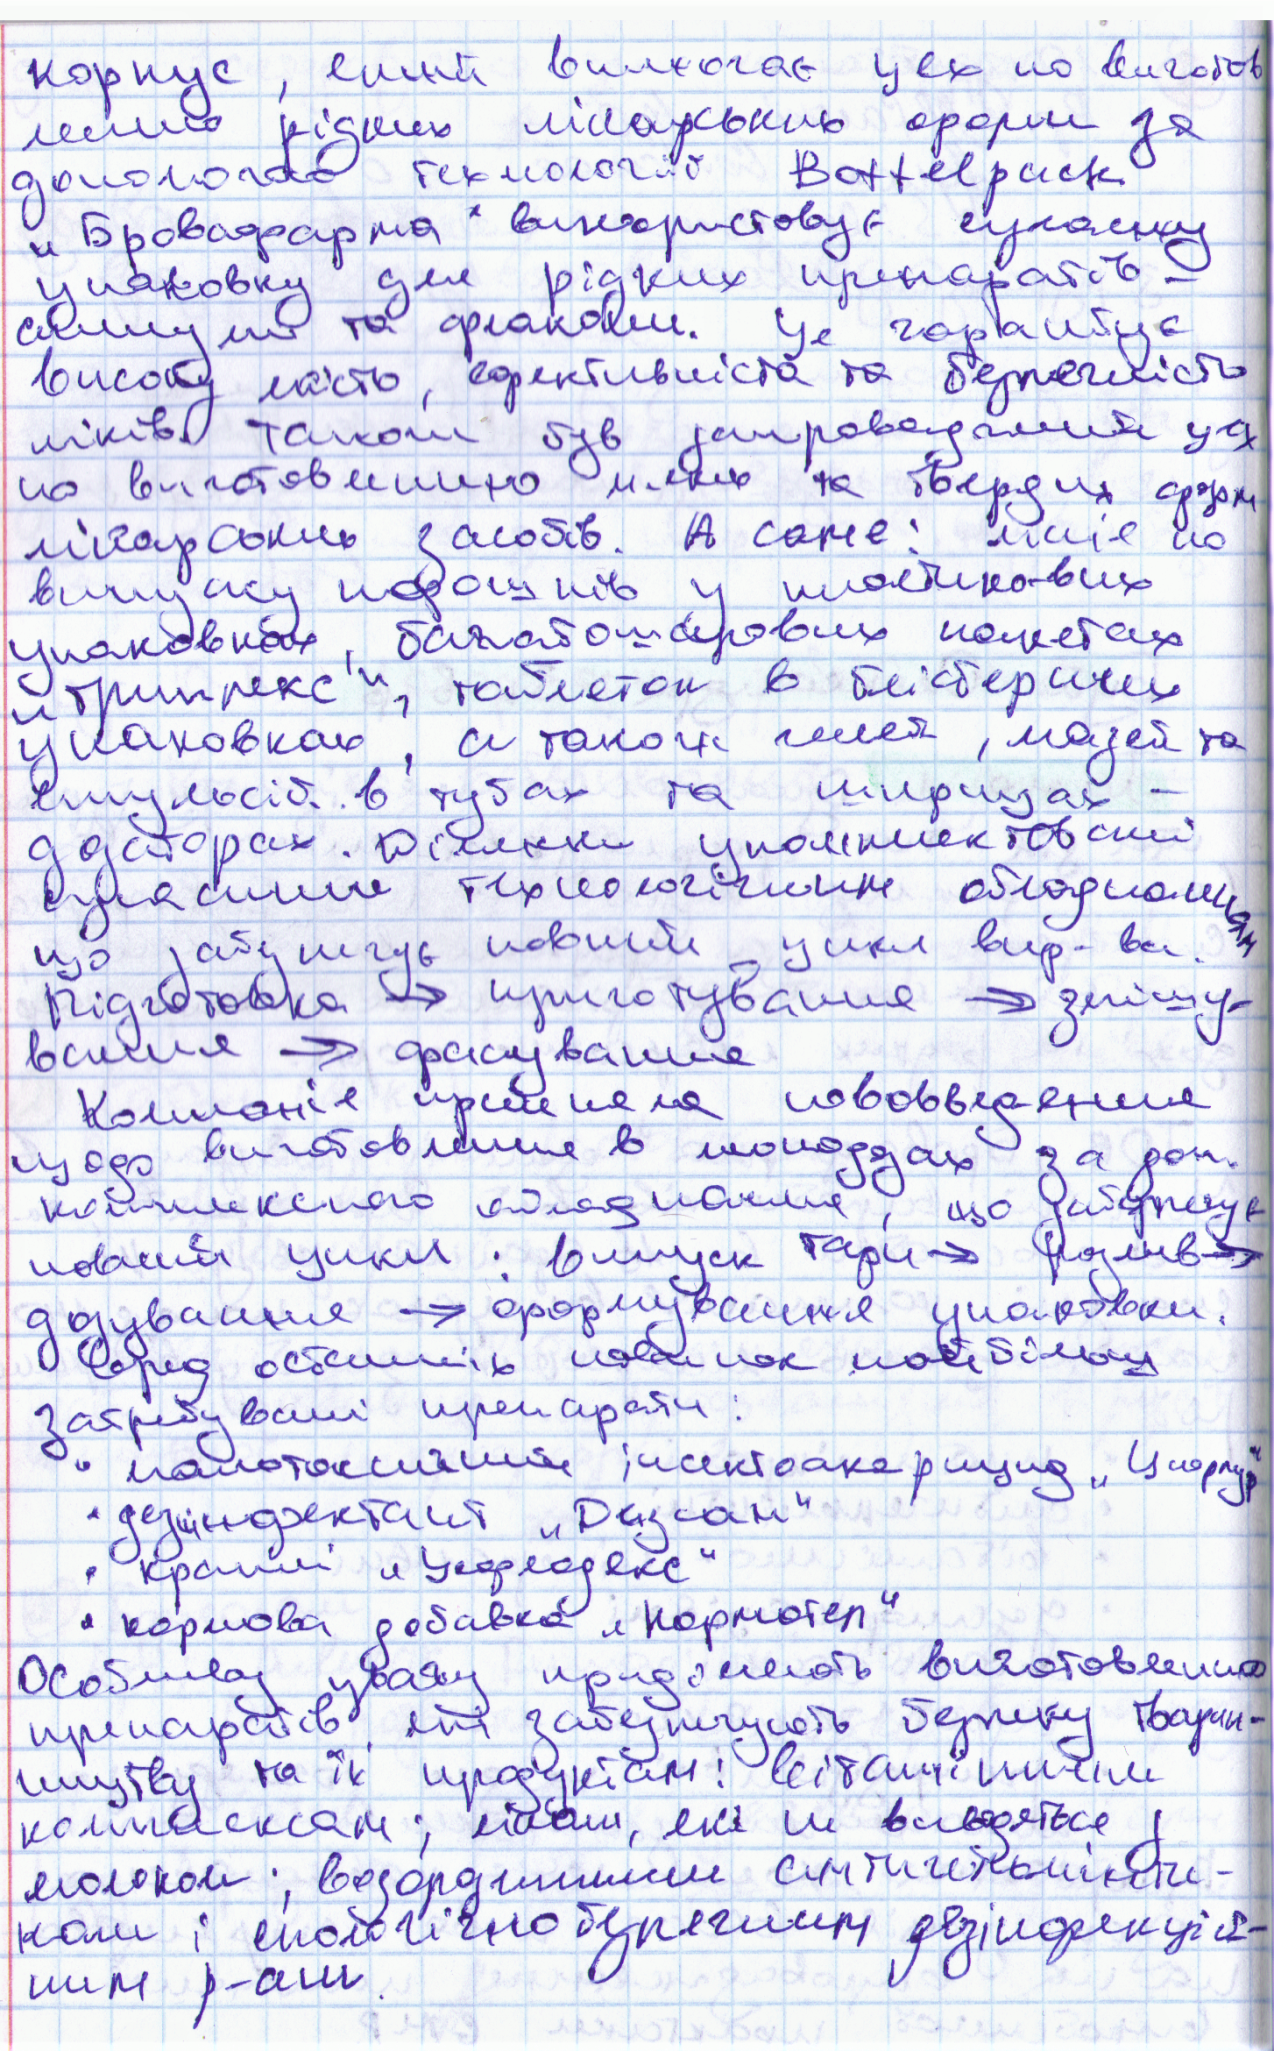 корпус, який включає цех по виготов
ленню рідких лікарських форм за
допомогою технології Bottelpack
„Бровафарма" використовує сучасну
упаковку для рідких препаратів –
ампули та флакони. Це гарантує
високу якість, ефективність та безпечність
ліків. Також був запроваджений цех
по виготовленню м'яких та твердих форм
лікарських засобів. А саме: лінія по
випуску порошків у пластикових
упаковках, багатошарових пакетах
„Триплекс", таблеток в блістерних
упаковках, а також гелей, мазей та
емульсій в тубах та шприцах –
дозаторах. Ділянки укомплектовані
сучасним технологічним обладнанням
що забезпечує повний цикл вир-ва.
Підготовка → приготування → змішу-
вання → фасування
Компанія прийняла нововведення
щодо виготовлення в монодозах за доп.
комплексного обладнання, що забезпечує
повний цикл: випуск тари → розлив →
дозування → формування упаковки.
Серед останніх новинок найбільш
затребувані препарати:
• малотоксичний інсектоакарицид „Ципорпур"
• дезінфектант „Дизсан"
• краплі „Уофлодекс"
• кормова добавка „Нормотел"
Особливу увагу приділяють виготовленню
препаратів, які забезпечують безпеку тварин-
ництву та їх продуктам: вітамінним
комплексам; лікам, які не виводяться з
молоком; водорозчинним антигельмінти-
кам і екологічно безпечним дезінфекцій-
ним р-ам.